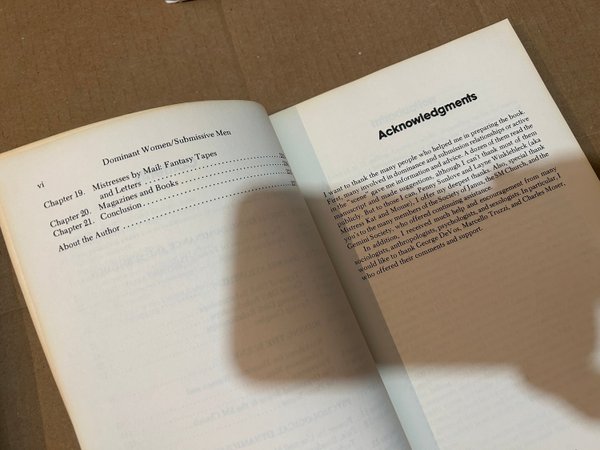 vi
Dominant Women/Submissive Men
Chapter 19. Mistresses by Mail: Fantasy Tapes
and Letters
Chapter 20. Magazines and Books
Chapter 21. Conclusion
About the Author
Acknowledgments
I want to thank the many people who helped me in preparing the book.
First, many involved in dominance and submission relationships or active
in the "scene" gave me information and advice. A dozen of them read the
manuscript and made suggestions, although I can't thank most of them
publicly. But to those I can, Penny Sunlove and Layne Winklebleck (aka
Mistress Kat and Mouse), I offer my deepest thanks. Also, special thank
you's to the many members of the Society of Janus, the SM Church, and the
Gemini Society, who offered continuing encouragement.
In addition, I received much help and encouragement from many
sociologists, anthropologists, psychologists, and sexology. In particular I
would like to thank George DeVos, Marcello Truzzi, and Charles Moser,
who offered their comments and support.